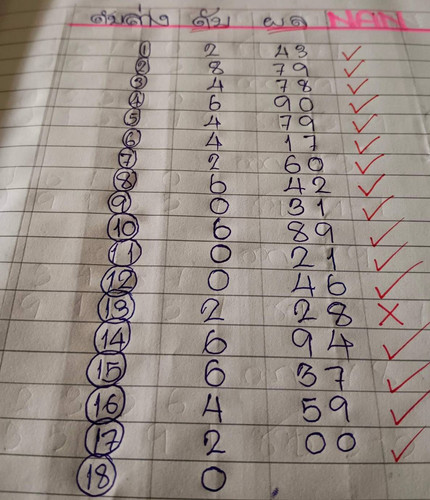 ดับล่าง ดับ ผล NAN
① 2 43 ✓
② 8 79 ✓
③ 4 78 ✓
④ 6 90 ✓
⑤ 4 79 ✓
⑥ 4 17 ✓
⑦ 2 60 ✓
⑧ 6 42 ✓
⑨ 0 31 ✓
⑩ 6 89 ✓
⑪ 0 21 ✓
⑫ 0 46 ✓
⑬ 2 28 ✗
⑭ 6 94 ✓
⑮ 6 37 ✓
⑯ 4 59 ✓
⑰ 2 00 ✓
⑱ 0